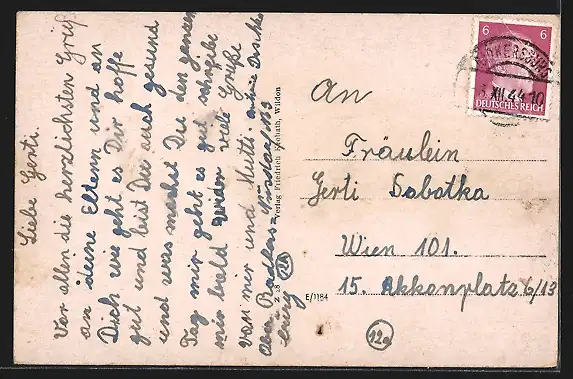 Liebe Gerti.
Vor allen die herzlichsten Grüß
an deine Eltern und an
Dich wie geht es Dir hoffe
gut und bist Du auch gesund
und was machst Du den ganzen
Tag mir geht es gut schreibe
mir bald wieder viele Grüße
von mir und Mutti
Ober Radkers
burg
Verlag Friedrich Wildon
Z 18
E/1184
12a
6 6
XII.44.10
DEUTSCHES REICH
An
Fräulein
Gerti Sobotka
Wien 101.
15. Akkonplatz 6/13
12a